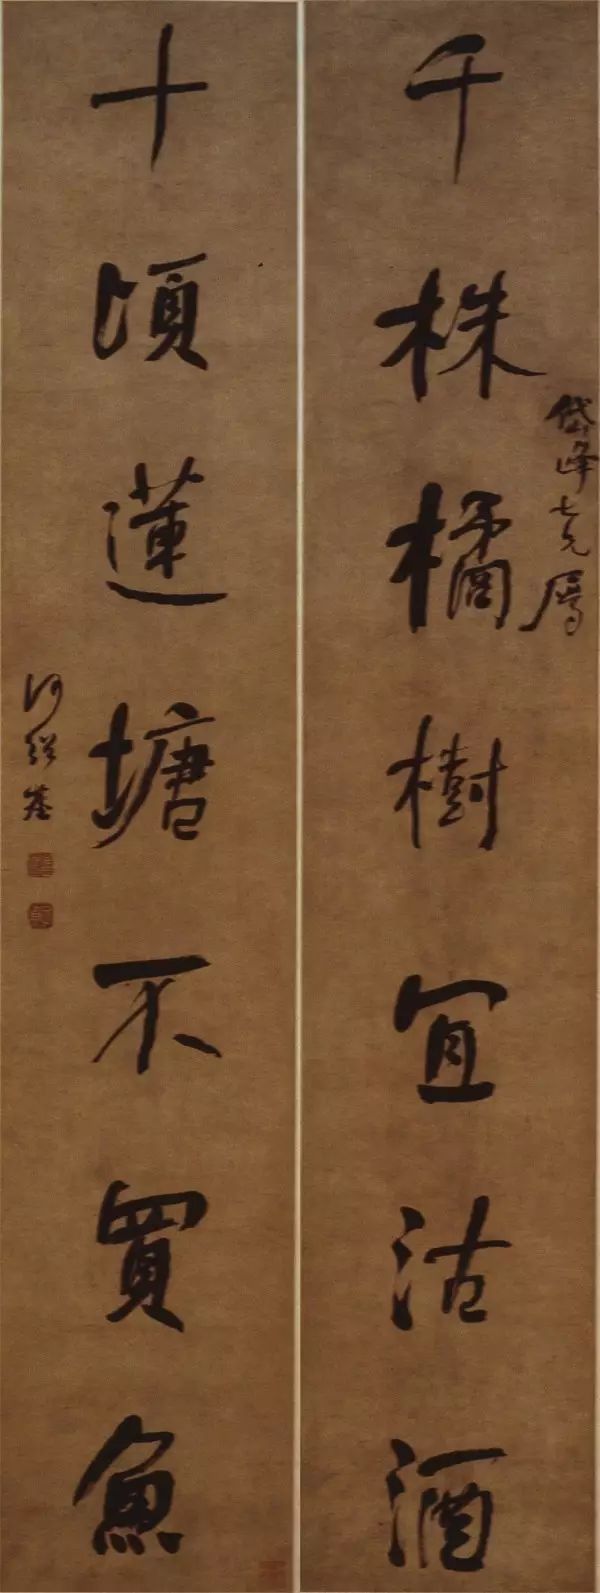 千株橘樹宜沽酒
岱峰七兄屬
十頃蓮塘不買魚
何紹基